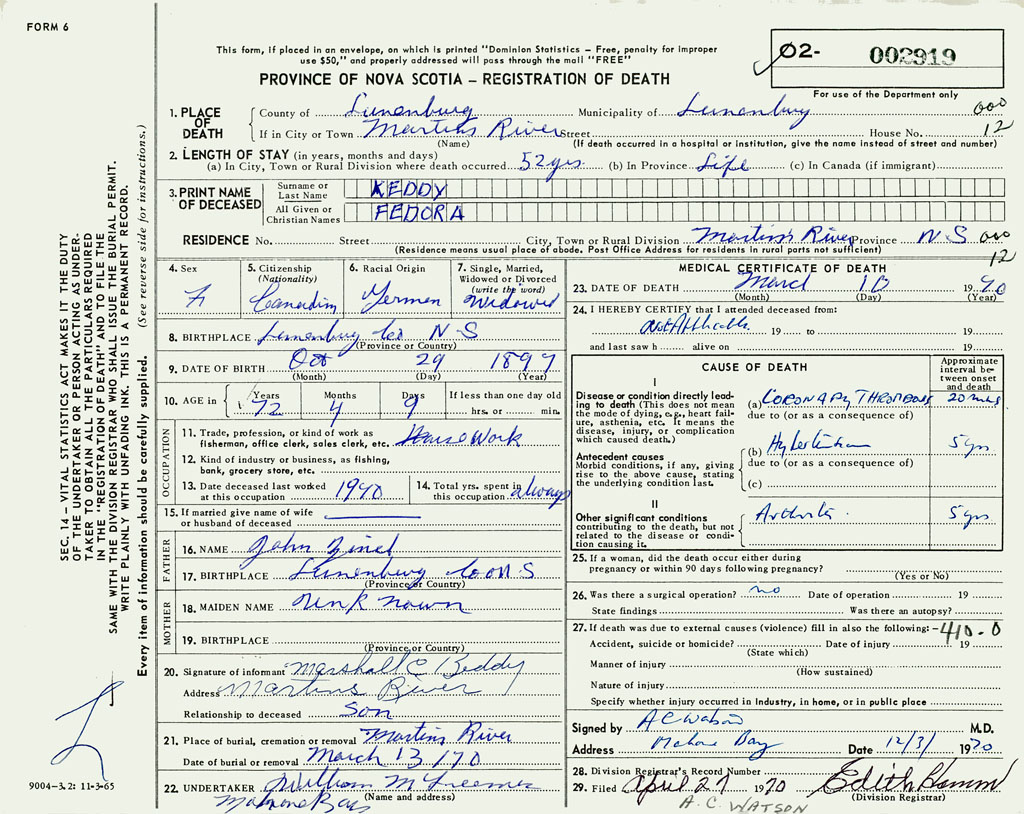 FORM 6
This form, if placed in an envelope, on which is printed "Dominion Statistics — Free, penalty for improper
use $50," and properly addressed will pass through the mail "FREE"
PROVINCE OF NOVA SCOTIA — REGISTRATION OF DEATH
02- 002919
For use of the Department only
1. PLACE OF DEATH
County of Lunenburg Municipality of Lunenburg 000
If in City or Town Martins River Street House No. 12
(Name) (If death occurred in a hospital or institution, give the name instead of street and number)
2. LENGTH OF STAY (in years, months and days)
(a) In City, Town or Rural Division where death occurred 52 yrs (b) In Province Life (c) In Canada (if immigrant)
3. PRINT NAME OF DECEASED
Surname or Last Name KEDDY
All Given or Christian Names FEDORA
RESIDENCE No. Street City, Town or Rural Division Martins River Province N S 000
(Residence means usual place of abode. Post Office Address for residents in rural parts not sufficient) 12
4. Sex F
5. Citizenship (Nationality) Canadian
6. Racial Origin German
7. Single, Married, Widowed or Divorced (write the word) Widowed
8. BIRTHPLACE Lunenburg Co N S
(Province or Country)
9. DATE OF BIRTH Oct 29 1897
(Month) (Day) (Year)
10. AGE in Years 72 Months 4 Days 9 If less than one day old hrs. or min.
OCCUPATION
11. Trade, profession, or kind of work as fisherman, office clerk, sales clerk, etc. House Work
12. Kind of industry or business, as fishing, bank, grocery store, etc.
13. Date deceased last worked at this occupation 1970
14. Total yrs. spent in this occupation always
15. If married give name of wife or husband of deceased
FATHER
16. NAME John Zinck
17. BIRTHPLACE Lunenburg Co N S
(Province or Country)
MOTHER
18. MAIDEN NAME Unk nown
19. BIRTHPLACE
(Province or Country)
20. Signature of informant Marshall C Keddy
Address Martins River
Relationship to deceased Son
21. Place of burial, cremation or removal Martins River
Date of burial or removal March 13/70
22. UNDERTAKER William M
Mahone Bay (Name and address)
MEDICAL CERTIFICATE OF DEATH
23. DATE OF DEATH March 10 1970
(Month) (Day) (Year)
24. I HEREBY CERTIFY that I attended deceased from:
Not Applicable 19 to: 19
and last saw h alive on 19
CAUSE OF DEATH
Approximate interval between onset and death
I
Disease or condition directly leading to death (This does not mean the mode of dying, e.g., heart failure, asthenia, etc. It means the disease, injury, or complication which caused death.)
(a) CORONARY THROMBOSIS 20 mins
due to (or as a consequence of)
Antecedent causes
Morbid conditions, if any, giving rise to the above cause, stating the underlying condition last.
(b) Hypertension 5 yrs
due to (or as a consequence of)
(c)
II
Other significant conditions contributing to the death, but not related to the disease or condition causing it.
Arthritis 5 yrs
25. If a woman, did the death occur either during
pregnancy or within 90 days following pregnancy?
(Yes or No)
26. Was there a surgical operation? no Date of operation 19
State findings Was there an autopsy?
27. If death was due to external causes (violence) fill in also the following: -410-0
Accident, suicide or homicide? Date of injury 19
(State which)
Manner of injury
(How sustained)
Nature of injury
Specify whether injury occurred in Industry, in home, or in public place
Signed by A C Watson M.D.
Address Mahone Bay Date 12/3/ 1970
28. Division Registrar's Record Number
29. Filed April 27 1970 Edith
(Division Registrar)
A.C. WATSON
SEC. 14 – VITAL STATISTICS ACT MAKES IT THE DUTY
OF THE UNDERTAKER OR PERSON ACTING AS UNDER-
TAKER TO OBTAIN ALL THE PARTICULARS REQUIRED
IN THE "REGISTRATION OF DEATH" AND TO FILE THE
SAME WITH THE DIVISION REGISTRAR WHO SHALL ISSUE THE BURIAL PERMIT.
WRITE PLAINLY WITH UNFADING INK. THIS IS A PERMANENT RECORD.
Every item of information should be carefully supplied. (See reverse side for instructions.)
9004-3.2: 11-3-65